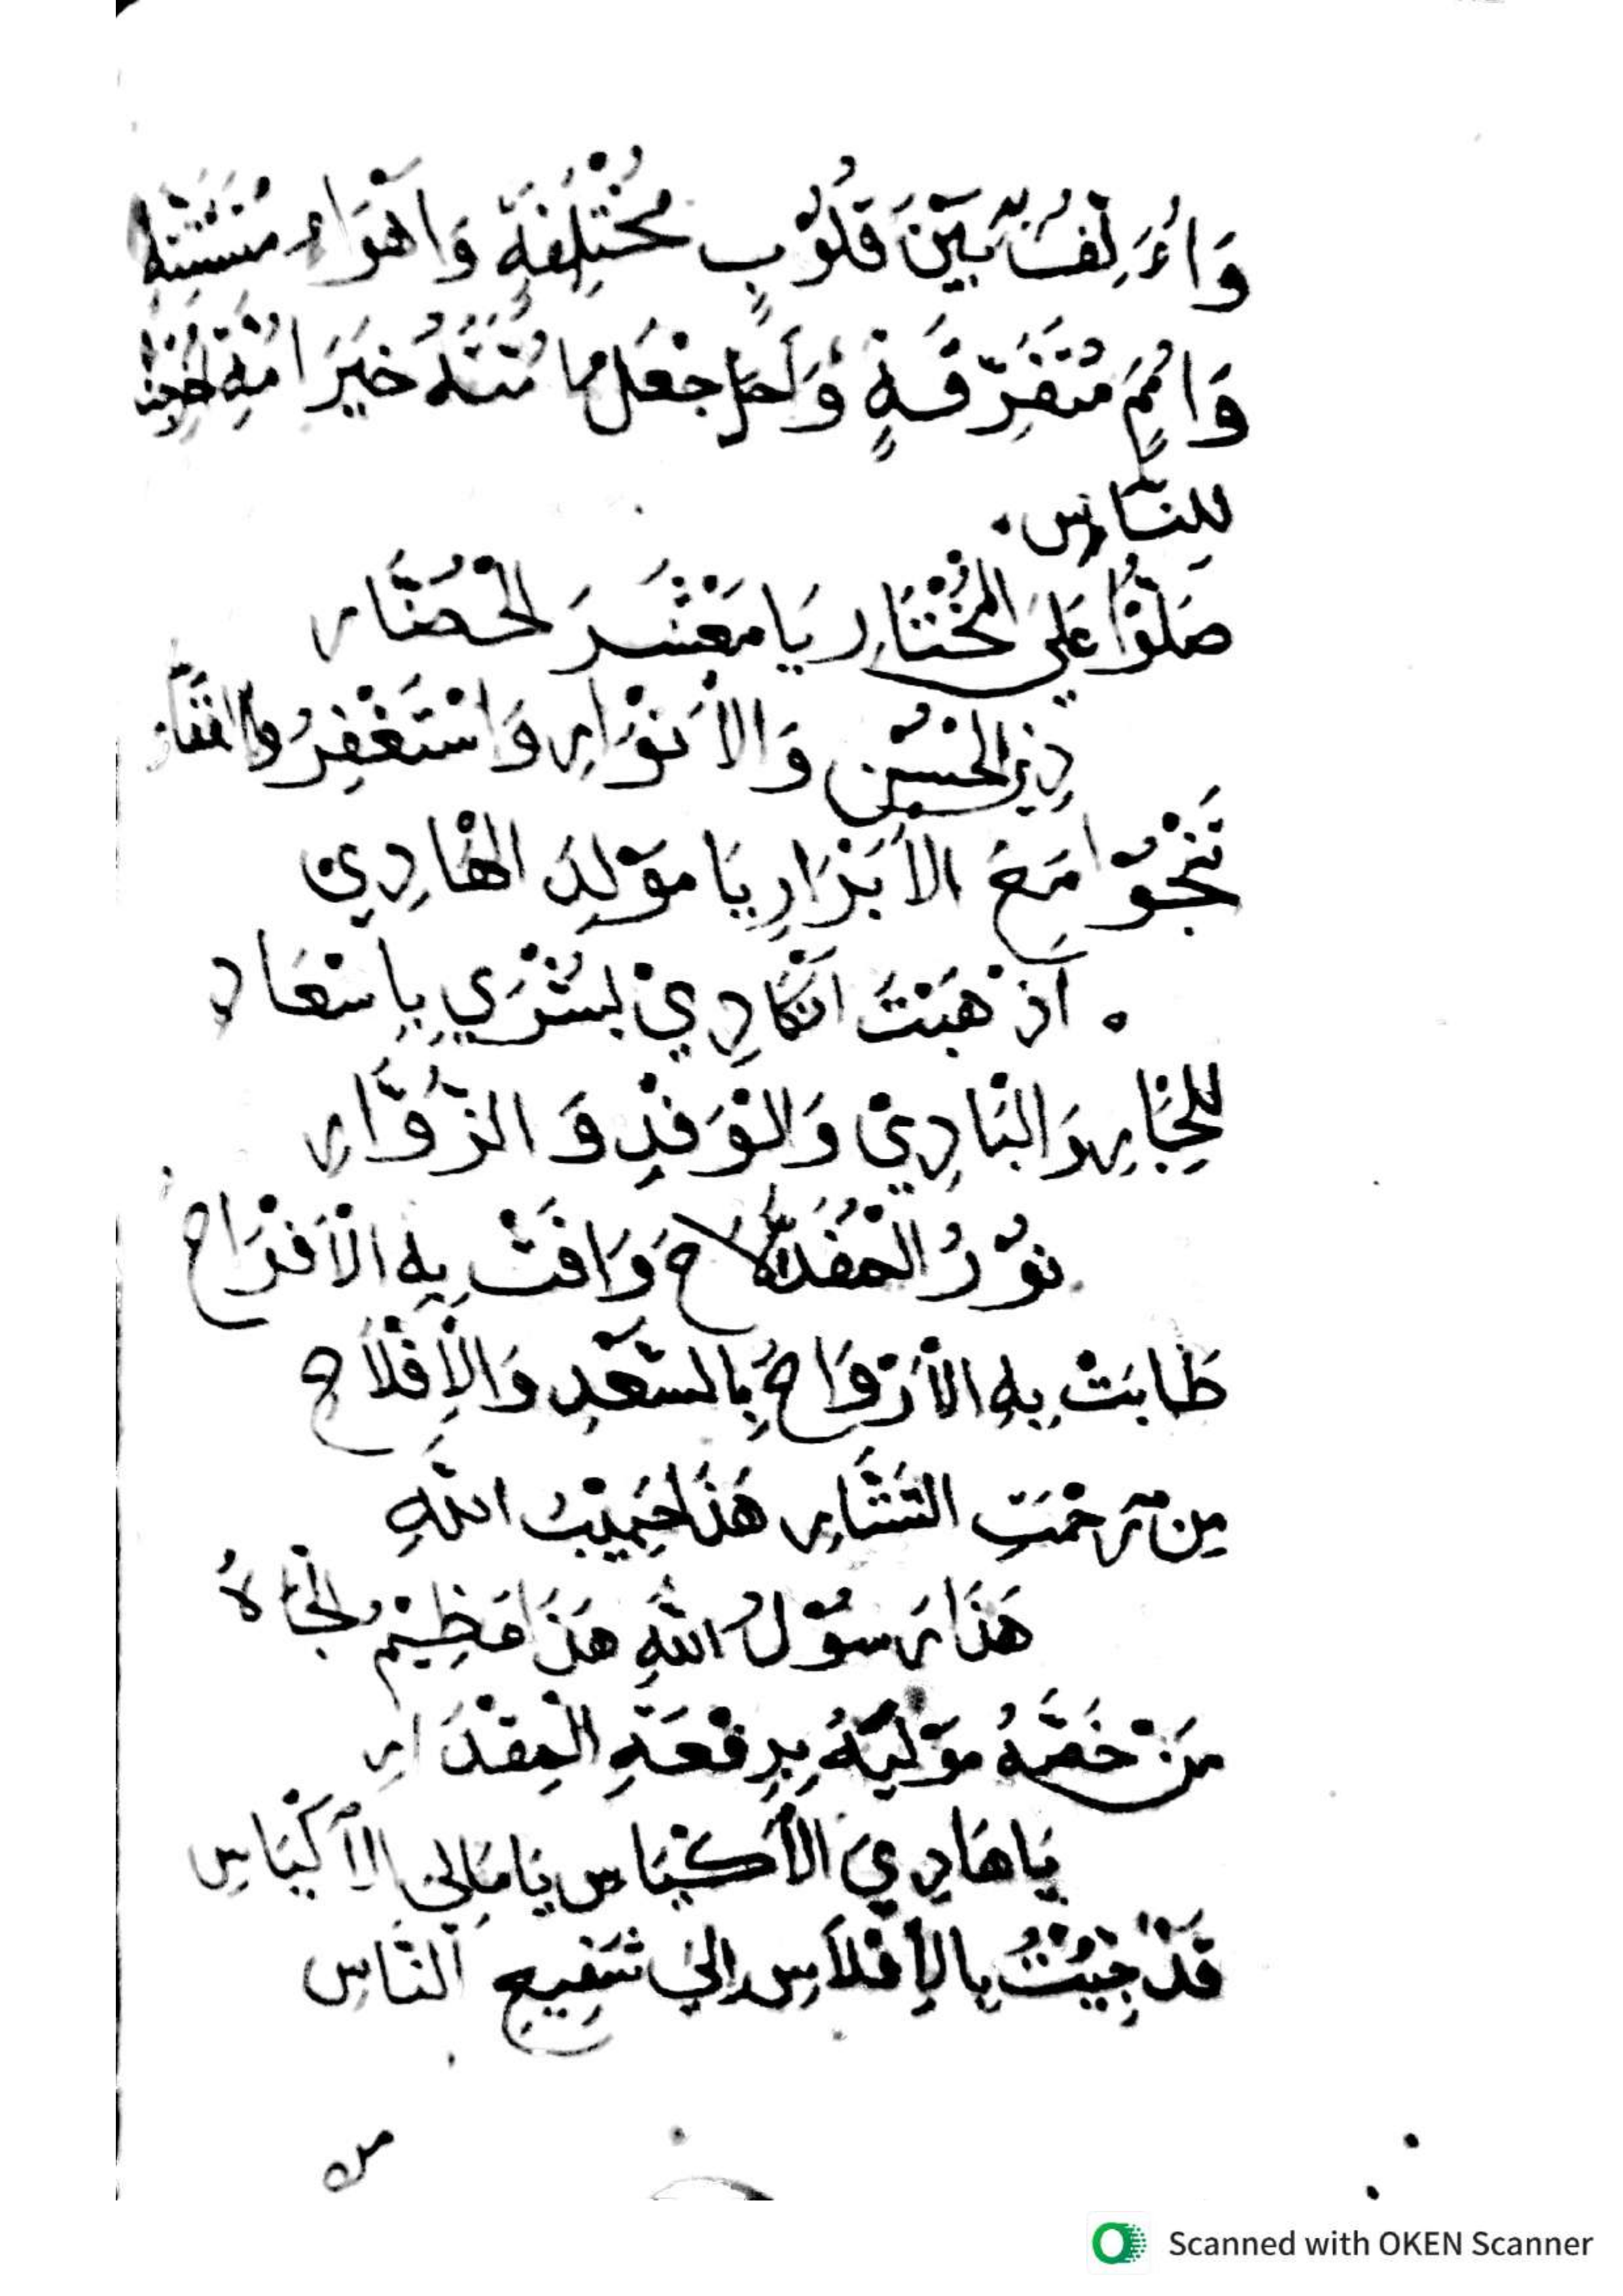 وَاُؤَلِفُ بِهِ بَيْنَ قُلُوْبٍ مُخْتَلِفَةٍ وَاَهْوَاءٍ مُتَشَتِّتَةٍ
وَاُمَمٍ مُتَفَرِّقَةٍ وَاَجْعَلُ اُمَّتَهُ خَيْرَ اُمَّةٍ اُخْرِجَتْ
لِلنَّاسِ.
صَلُّوْا عَلَى الْمُخْتَارِ يَا مَعْشَرَ الْحُضَّارِ
ذِي الْحُسْنِ وَالْأَنْوَارِ وَاسْتَغْفِرُوا الغَفَّارَ
تَنْجُوْا مَعَ الْأَبْرَارِ يَا مَوْلِدَ الْهَادِيْ
اَذْهَبْتَ اَنْكَادِيْ بُشْرَي بِاِسْعَادِ
لِلْجَارِ وَالنَّادِيْ وَالْوَفْدِ وَ الزُّوَّارِ
نُوْرُ الْمُفَدَّى لَاحَ وَوَافَتْ بِهِ الْأَفْرَاحْ
طَابَتْ بِهِ الْأَرْوَاحُ بِالسَّعْدِ وَالْإِفْلَاحْ
مِنْ رَحْمَتِ السَّتَّارِ هَذَا حَبِيْبُ اللّٰهِ
هَذَا رَسُوْلُ اللّٰهِ هَذَا عَظِيْمُ الْجَاهُ
مَنْ خَصَّهُ مَوْلَيهُ بِرِفْعَةِ الْمِقْدَارِ
يَا هَادِيَ الْأَكْيَاسِ يَا مَالِئَ الْأَكْيَاسِ
قَدْ جِيْتُ بِالْإِفْلَاسِ اِلَى شَفِيعِ النَّاسِ
من
Scanned with OKEN Scanner